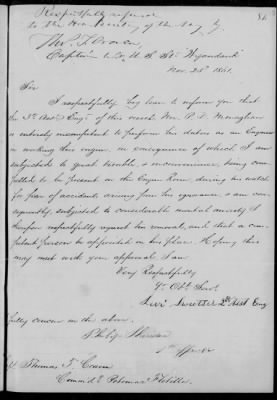 Respectfully referred
to the Hon Secretary of the Navy by
Thos. T. Craven
Captain &c. U. S. Str. "Wyandank"
Nov. 25th 1861.
Sir
I respectfully beg leave to inform you that
the 3rd Asst Engr of this vessel Mr. P. D.
is entirely incompetent to perform his duties as an Engineer
in working this engine, in consequence of which, I am
subjected to great trouble, & inconvenience, being com-
pelled to be present in the Engine Room, during his watch
for fear of accidents arising from his ignorance, & am con-
sequently, subjected to considerable mental anxiety I
therefore respectfully request his removal, and that a com-
petent person be appointed in his place. Hoping this
may meet with your approval, I am
Very Respectfully
Yr. Obt. Servt.
Levi 2nd Asst Eng
fully concur in the above.
Philip
Thomas T. Craven
Command'g Potomac Flotilla